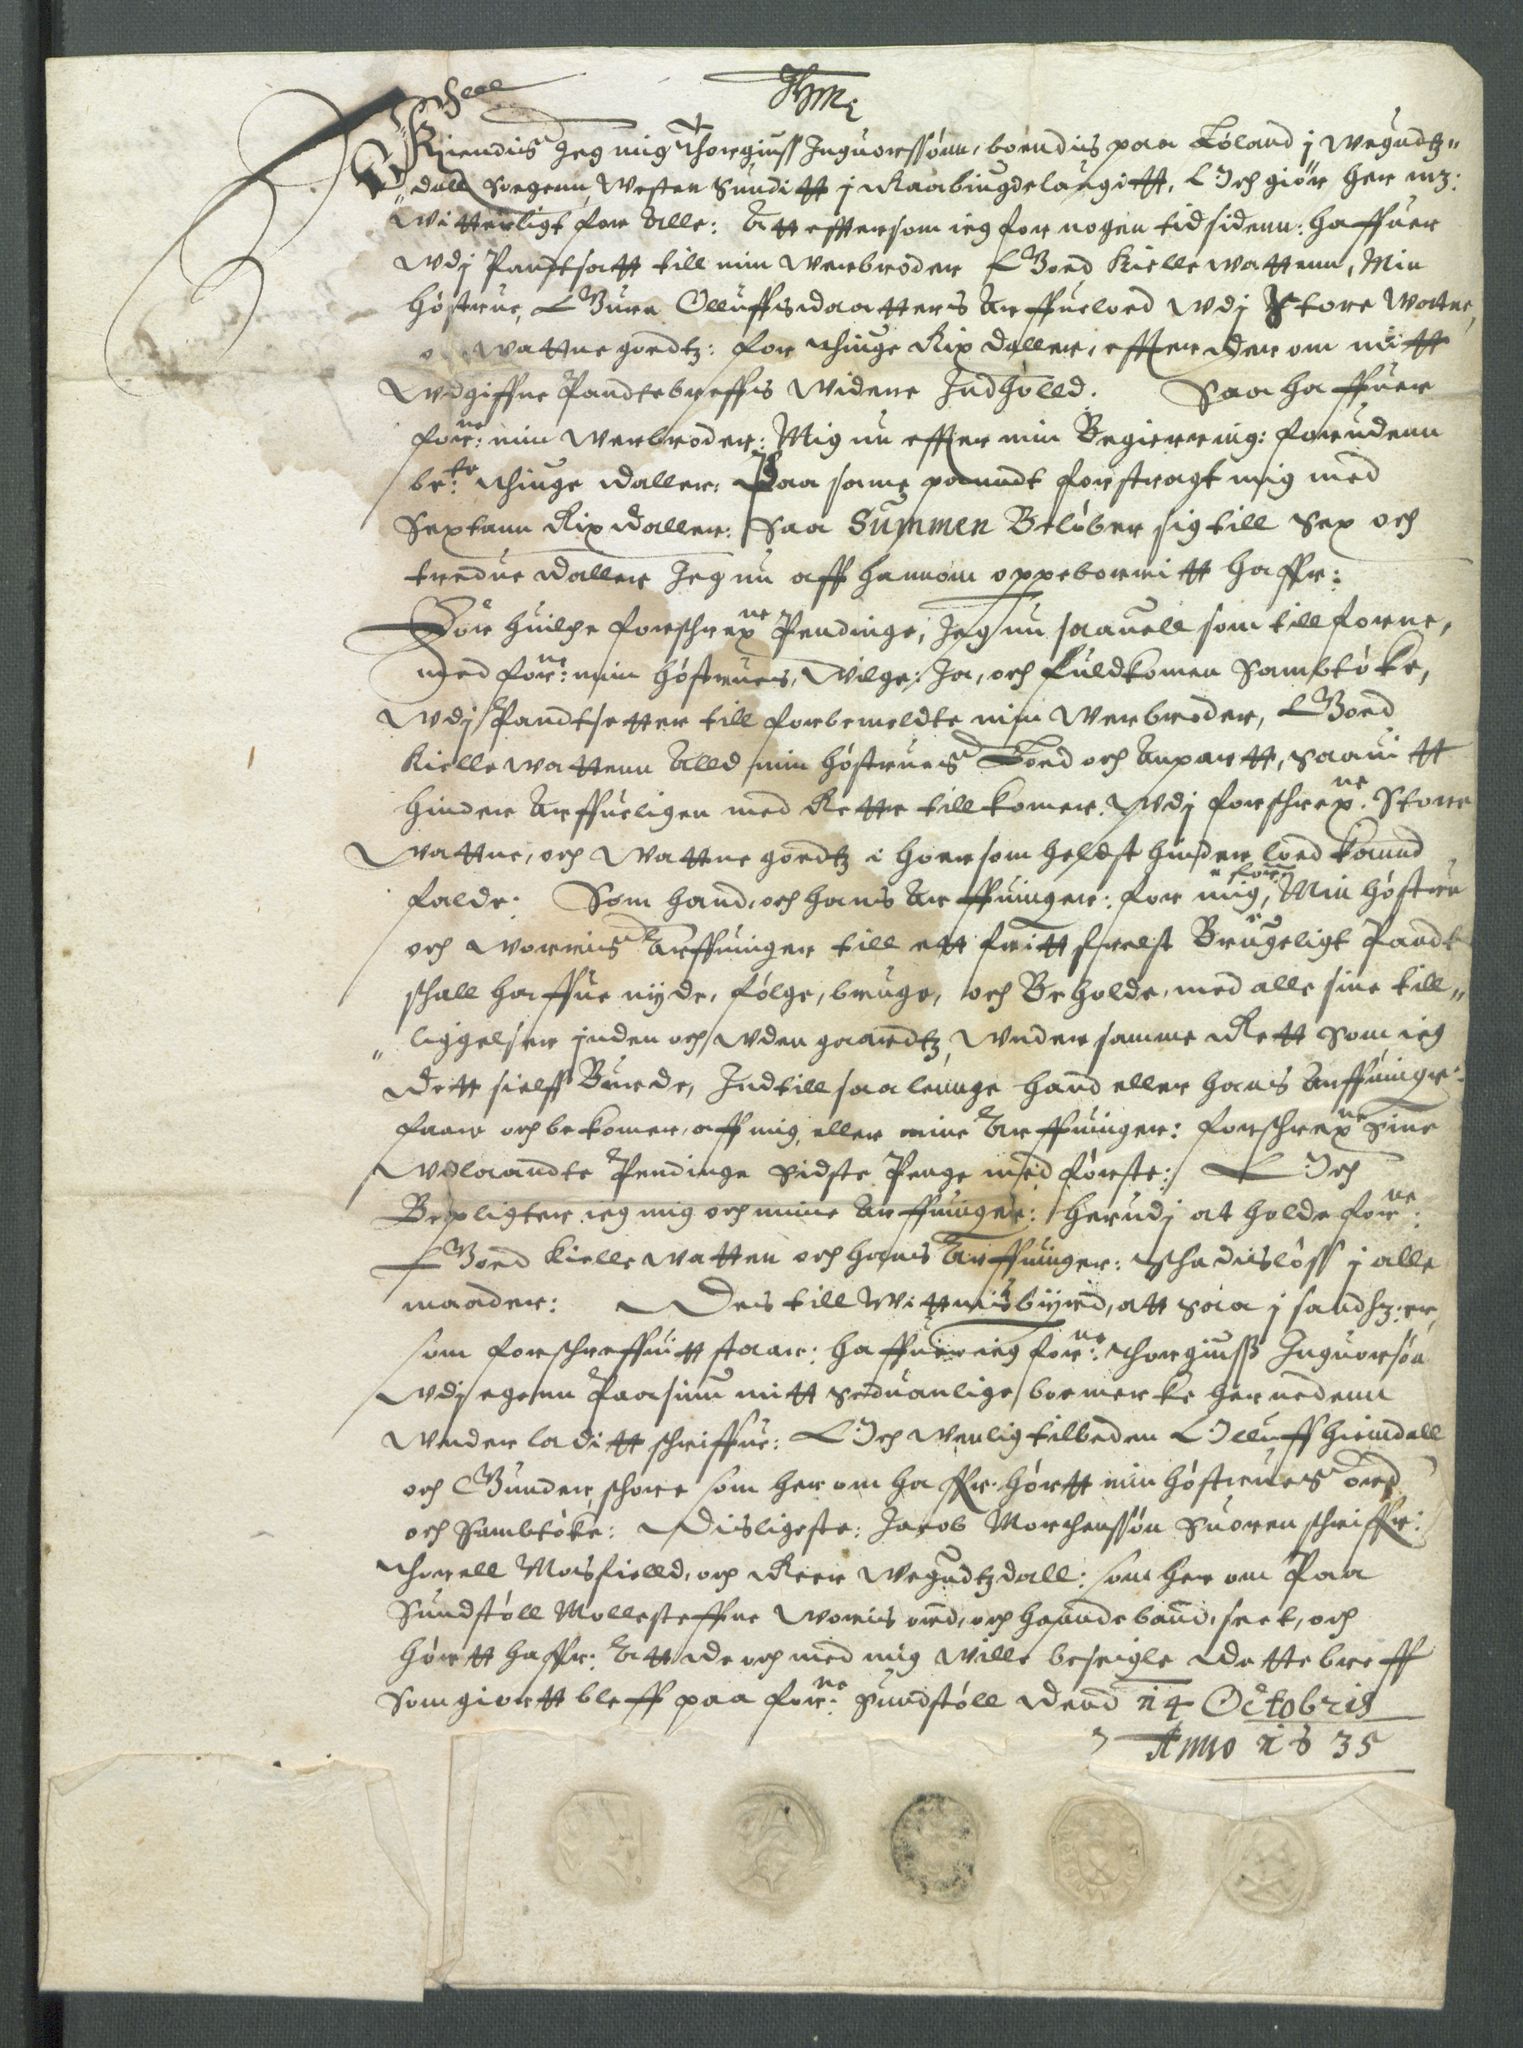 Kiendis Jeg mig Thorgiuss Inguorssønn, boendis paa Løland j Wegudtz„
dall Sogenn, Westen Sunditt j Raabiugdelaugitt, Och giør her mz:
Witterligt for Alle: Att efftersom ieg for nogen tid sidenn: haffuer
Wdj Pantsatt till min Werbroder Boed Kielleuattenn, Min
høstrue, Gura Olluffsdaatters Arffuelod Wdj Store Watne,
Wattne goedtz: for Thiuge Rix daller, effter Der om nu itt
Wdgiffne Pandtebreffs Widere Indholld. Saa haffuer
forne: min Werbroder: Mig nu effter min Begierring: forudenn
bete: Thiuge daller: Paa same panndt forstragt mig med
Sextann Rixdaller: Saa Summen Beløber sig till Sex och
tredue daller Jeg nu aff hannom oppeborritt haffr:
For huilche forschreffne Pendinge, Jeg nu saauell som tillforne,
med forne: min høstrues, Wilge: Ja, och fuldkomen Sambtøke,
Wdj Pandtsetter till forbemeldte min Werbroder, Boed
Kielleuattenn Alld min høstrues Loed och Anpartt, saauitt
hinder Arffueligen med Rette tillkomer. Wdj forschreffne. Store
Wattne, och Wattne goedtz i huorsomheldst hinder loed kannd
falde: Som hand, och hans Arffuinger: for mig, for Min høstru
och Worris Arffuinger till ett fritt frelst Brugeligt Pandt
schall haffue nyde, følge, bruge, och Beholde, med alle sine till„
„liggelser jnden och Wden gaardtz, Wnder samme Rett som ieg
Dett sielff Burde, Indtill saalennge hand eller hans Arffuinger
faar och bekomer, aff mig eller mine Arffuinger: forschreffne sine
Wdlaandte Pendinge Sidste Penge med første: Och
Bepligter ieg mig och mine Arffuinger: herudj at holde forne:
Boed Kielleuatten och hans Arffuinger: Schadisløss j alle
maader: Des till Wittnisbyrd, att saa j sandhz: er,
som forschreffuitt staar: haffuer ieg forne: Thorgiuss Inguorsøn
Wdj egenn Paasiun mitt Seduanlige boemerke her nedenn
Wnder laditt schriffue: Och Wenlig tilbeden Olluff hiemdall
och Gunder schore som her om haffr. hørtt min høstrues ord
och Sambtøke: Disligeste: Jacob Morchenssøn Suoren schriffr:
Thorell Mosfielld, och Reer Wegudtzdall: som her om Paa
Sundstøll Mollesteffne Woris ord, och haandebaand, seet, och
hørtt haffr: Att De och med mig Wille beseigle Dette breff
Som giortt bleff paa forne: Sundstøll Dend 14 Octobris
Anno 1635